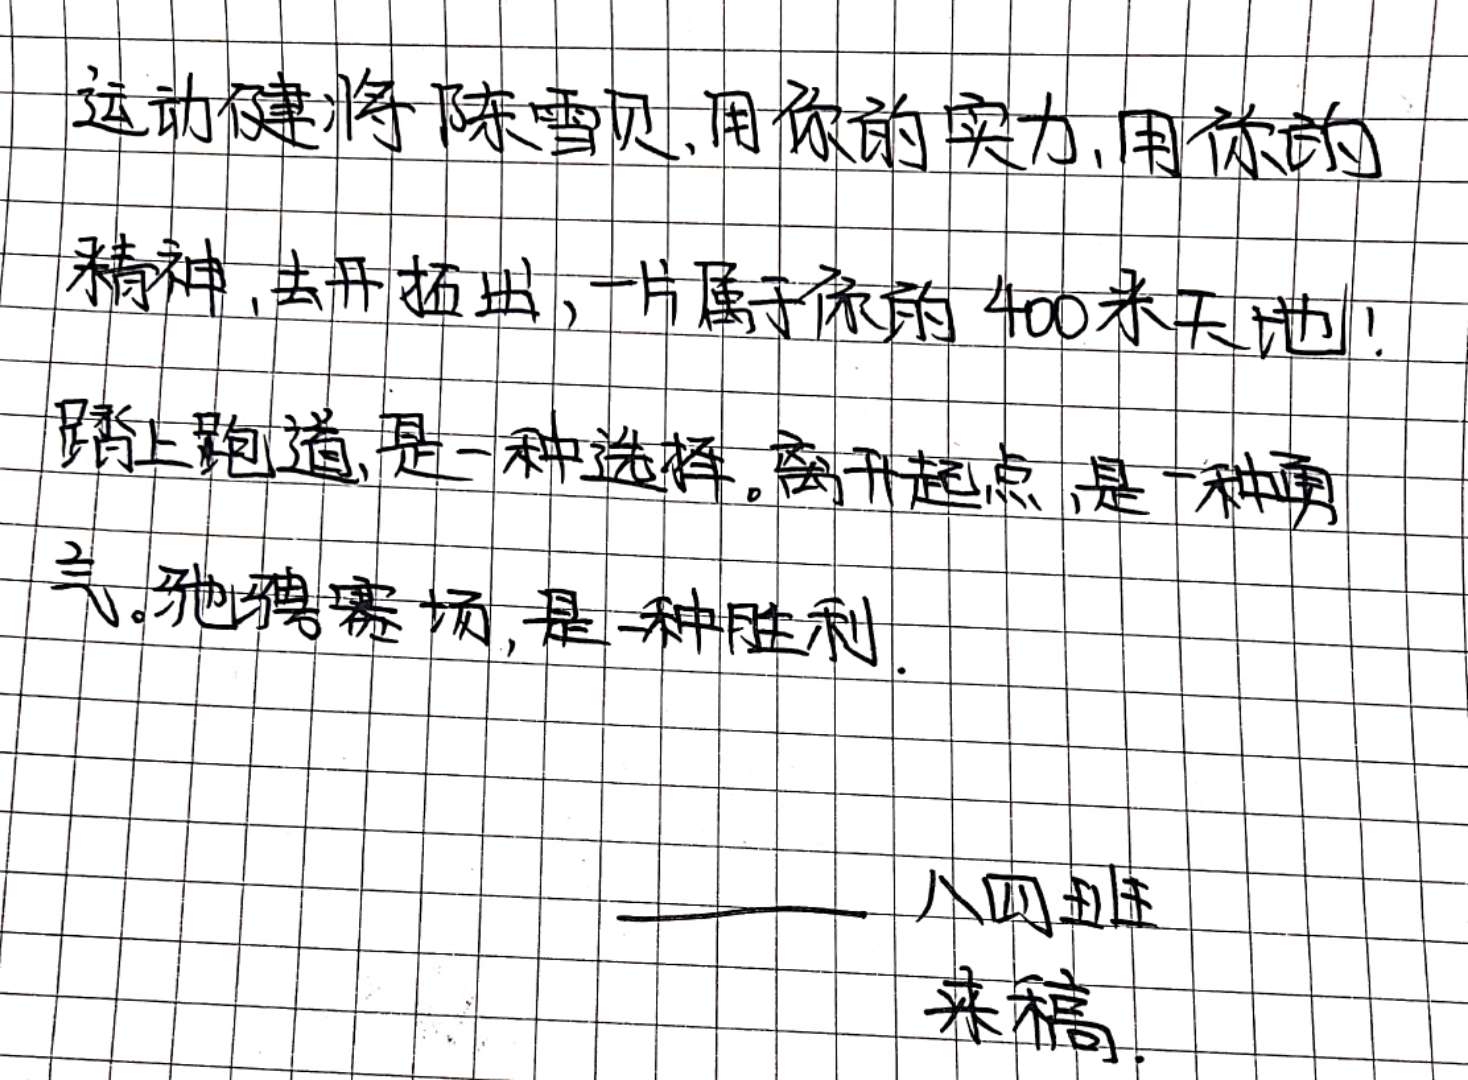 运动健将陈雪贝,用你的实力,用你的
精神,去开拓出,一片属于你的400米天地!
踏上跑道,是一种选择。离开起点,是一种勇
气。驰骋赛场,是一种胜利.
——八四班
来稿.